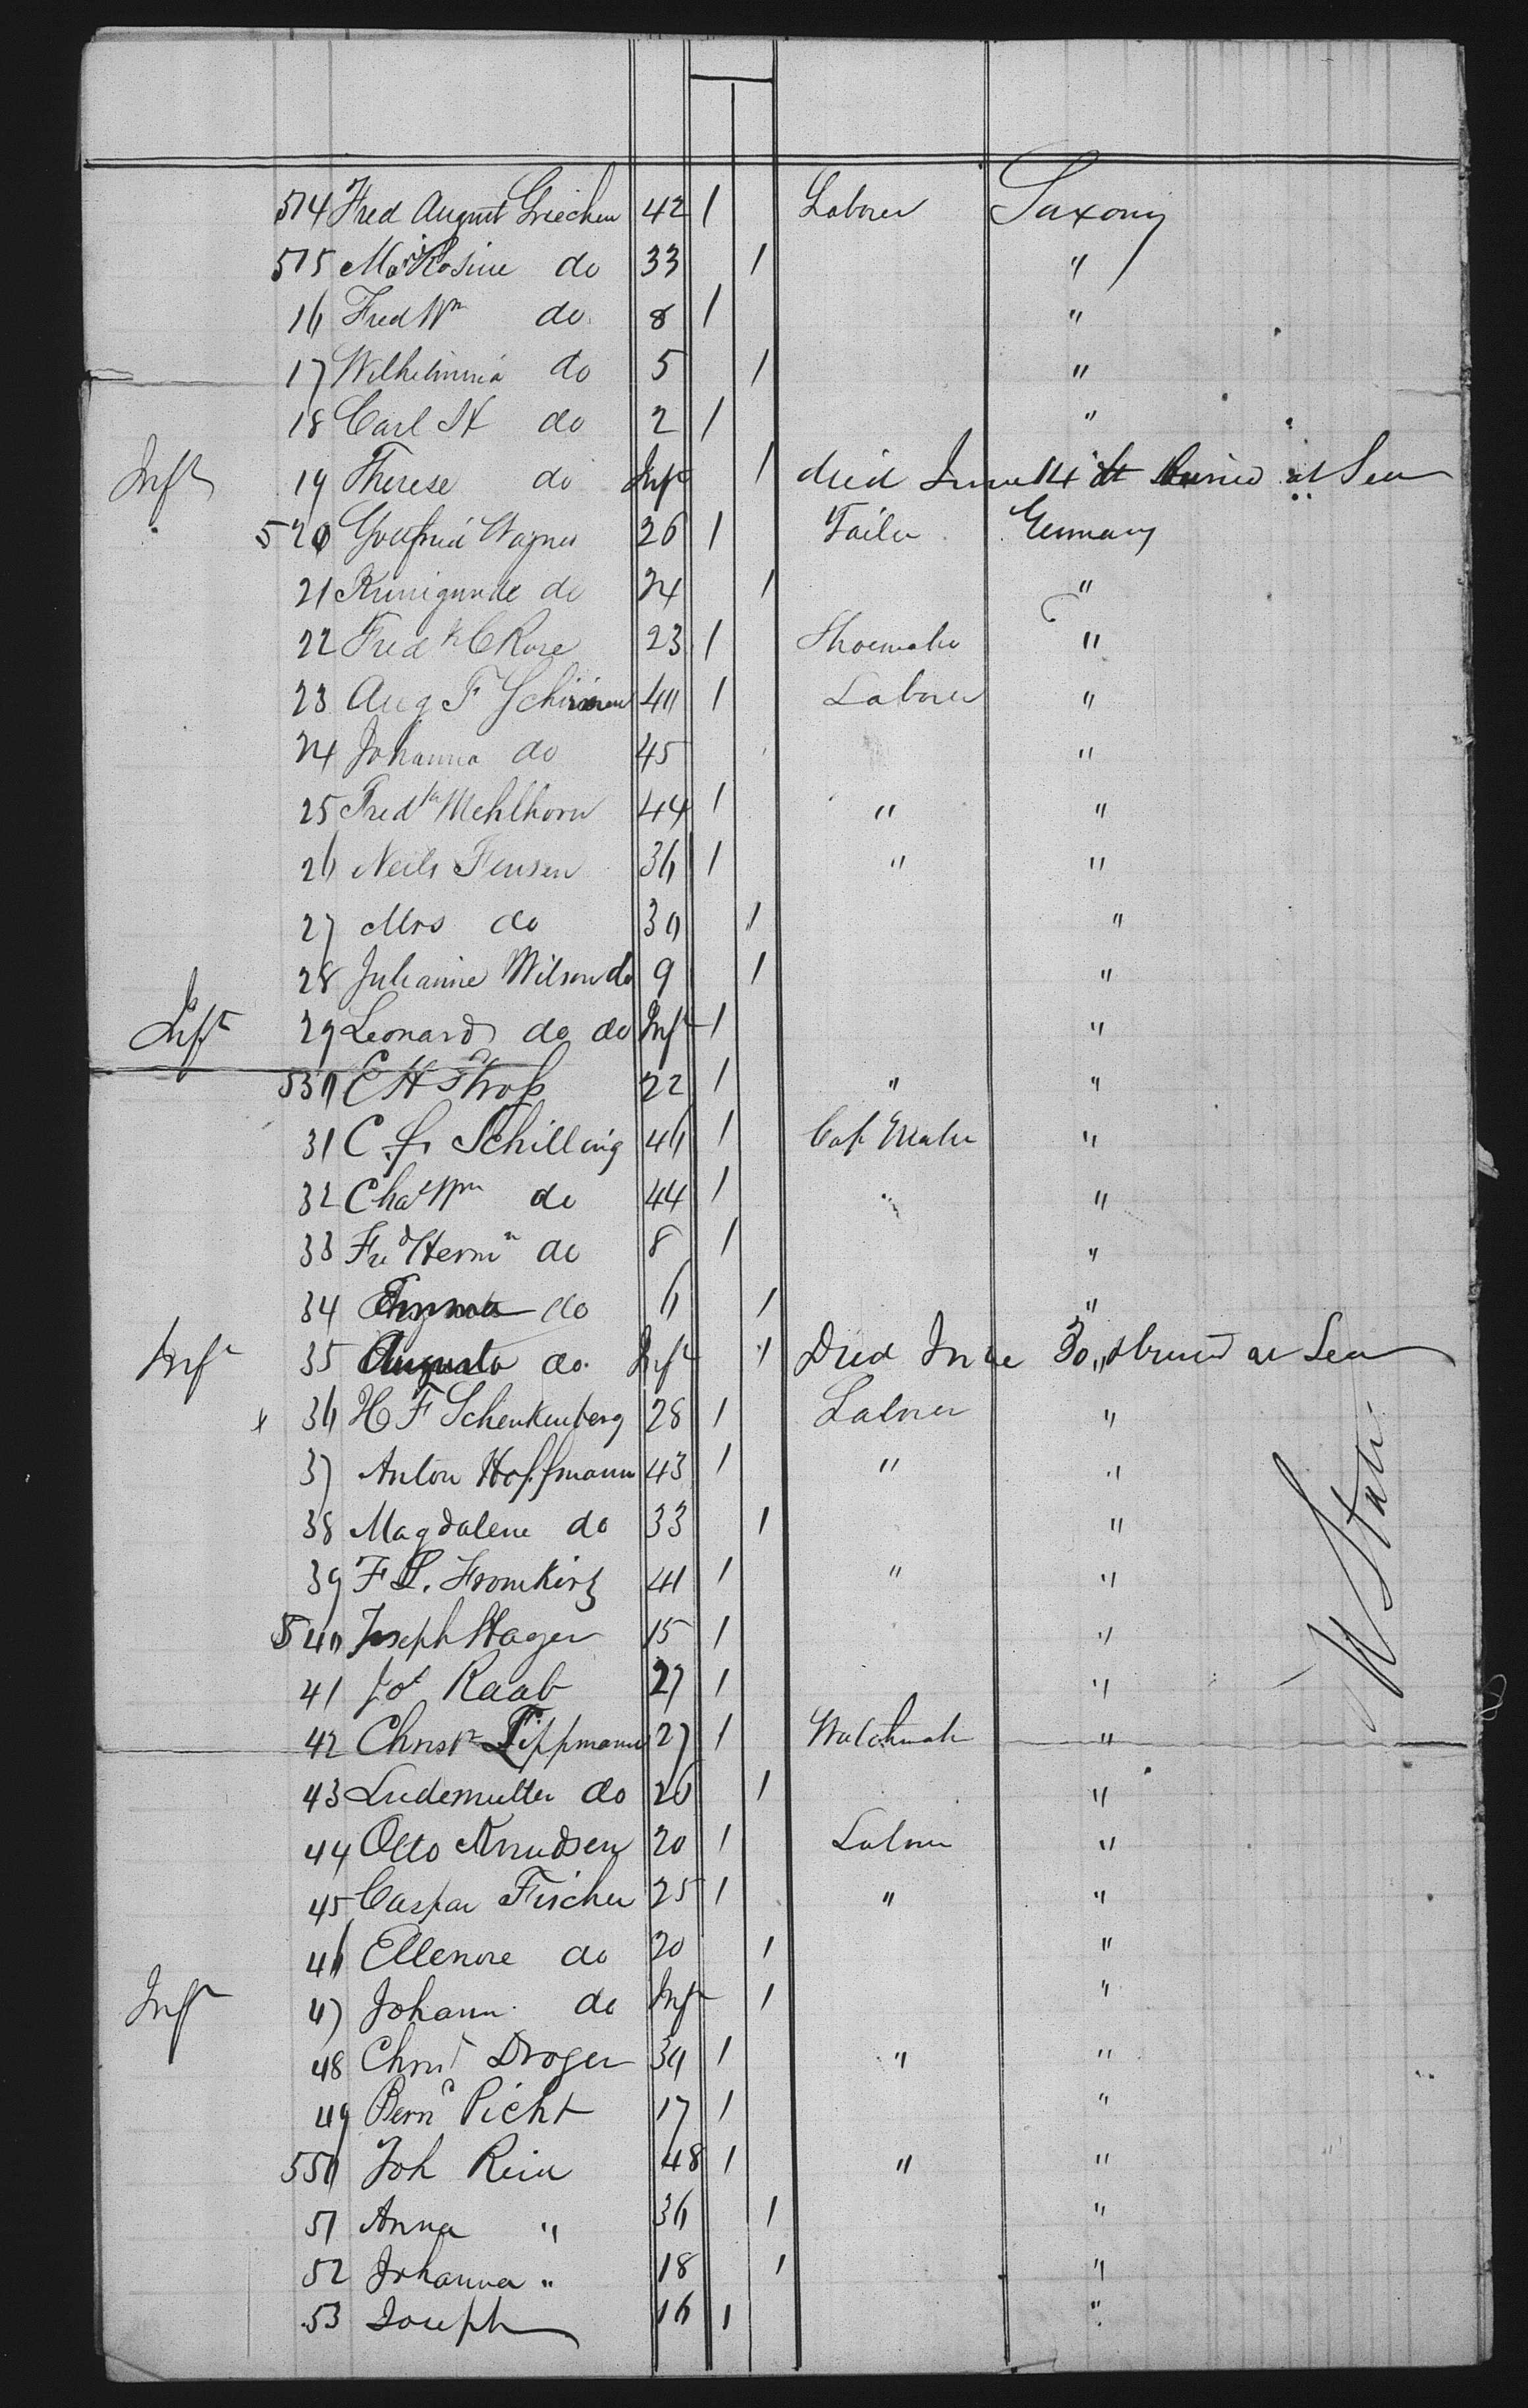 514 Fred August Griechen 42 1 Laborer Saxony
515 Mar Rosine do 33 1 "
16 Fred Wm do 8 1 "
17 Wilhelmina do 5 1 "
18 Carl H do 2 1 "
Inft 19 Therese do Inft 1 died June 14 Buried at Sea
520 Gottfried Wagner 26 1 Tailer Germany
21 Kunigunde do 24 1 "
22 Fredk C Rose 23 1 Shoemake "
23 Aug F 40 1 Laborer "
24 Johanna do 45 "
25 Fredk Mehlhorn 44 1 " "
26 Neils Jensen 36 1 " "
27 Mrs do 30 1 "
28 Julianne Wilson do 9 1 "
Inft 29 Leonard do do Inft 1 "
530 E H Stross 22 1 " "
31 C. F. Schilling 46 1 Cap Maker "
32 Chas Wm do 44 1 "
33 Fred Hermn do 8 1 "
34 Emma do 6 1 "
Inft 35 Augusta do Inft 1 Died June 30 buried at Sea
x 36 H F Schenkenberg 28 1 Laborer "
37 Anton Hoffmann 43 1 " "
38 Magdalene do 33 1 "
39 F L. Fromkirz 41 1 " "
540 Joseph Hager 15 1 "
41 Jos Raab 27 1 "
42 Christn Tippmann 27 1 Watchmak "
43 Ludemutter do 26 1 "
44 Otto Knudsen 20 1 Laborer "
45 Caspar Fischer 25 1 " "
46 Ellenore do 20 1 "
Inft 47 Johann do Inft 1 "
48 Christ Droger 30 1 " "
49 Bernd Picht 17 1 "
550 Joh Rein 48 1 " "
51 Anna " 36 1 "
52 Johanna " 18 1 "
53 Joseph 16 1 "